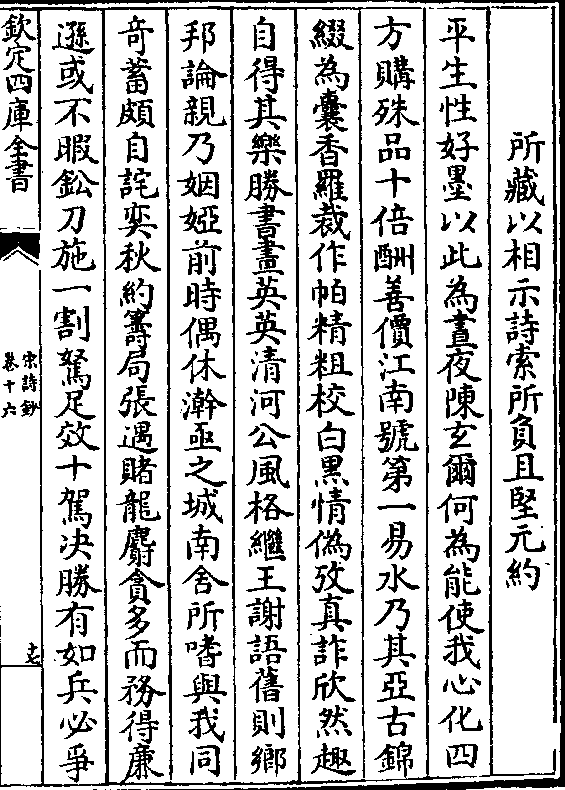 所藏以相示詩索所負且堅元約
平生性好墨以此為晝夜陳玄爾何為能使我心化四
方購殊品十倍酬善價江南號第一易水乃其亞古錦
綴為囊香羅裁作帕精粗校白黑情偽攷真詐欣然趣
自得其樂勝書畫英英清河公風格繼王謝語舊則鄉
邦論親乃姻婭前時偶休澣亟之城南舍所嗜與我同
奇蓄頗自詫奕秋約籌局張遇賭龍麝貪多而務得廉
遜或不暇鉛刀施一割駑足效十駕决勝有如兵必爭
欽定四庫全書
宋詩鈔
卷十六